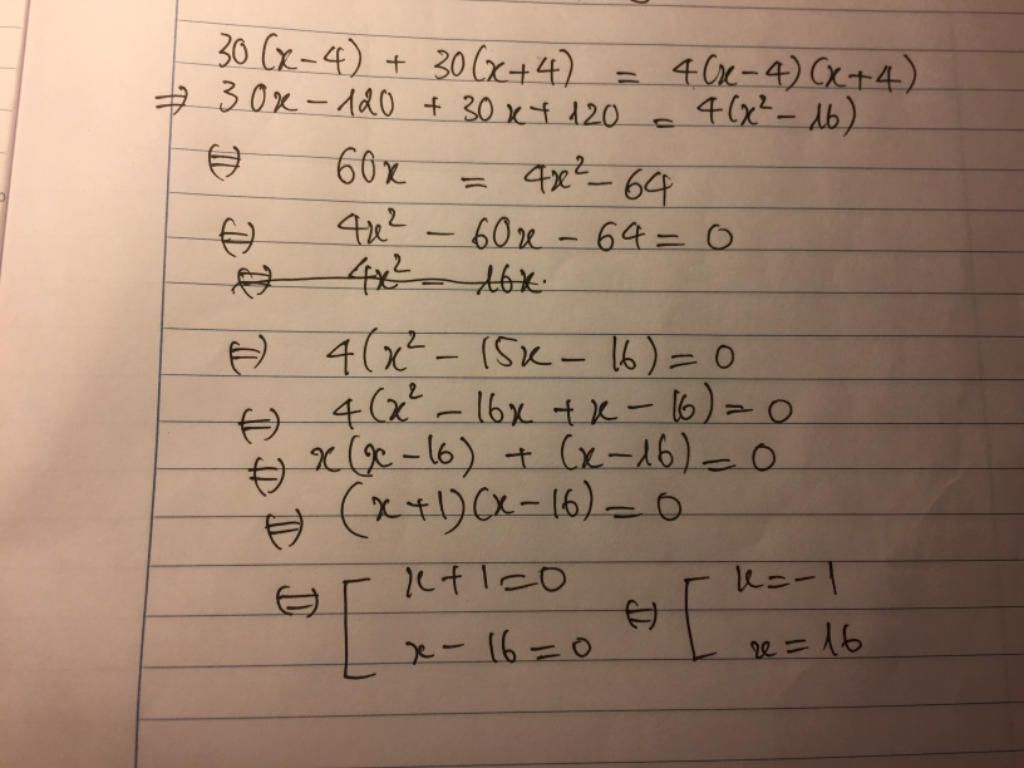 30(x-4) + 30(x+4) = 4(x-4)(x+4)
⇒ 30x - 120 + 30x + 120 = 4(x² - 16)
⇔ 60x = 4x² - 64
⇔ 4x² - 60x - 64 = 0
⇔ 4x² - 16x.
⇔ 4(x² - 15x - 16) = 0
⇔ 4(x² - 16x + x - 16) = 0
⇔ x(x-16) + (x-16) = 0
⇔ (x+1)(x-16) = 0
⇔ [ x+1=0 ⇔ [ x=-1
x-16=0 x=16